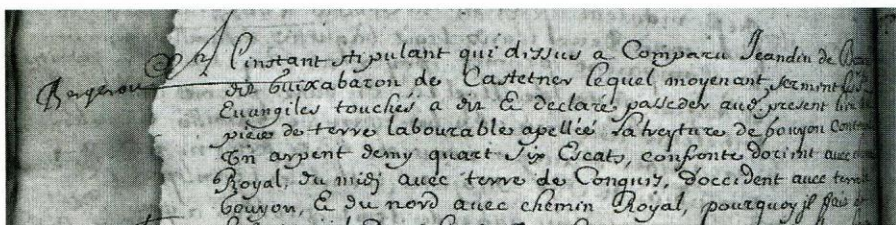 Bergerou
A l'instant stipulant qui dissus a Comparu Jeandin de
dit Guixabaron de Castetner lequel moyenant serment
Evangiles touchés a dit & declaré posseder aud. present
piece de terre labourable apellée Latreyture de bouyon
un arpent demy quart six Escats, confronte dorient avec
Royal, du midj avec terre de Conquis, d'occident avec terre
bouyon, & du nord avec chemin Royal, pourquoy jl fais